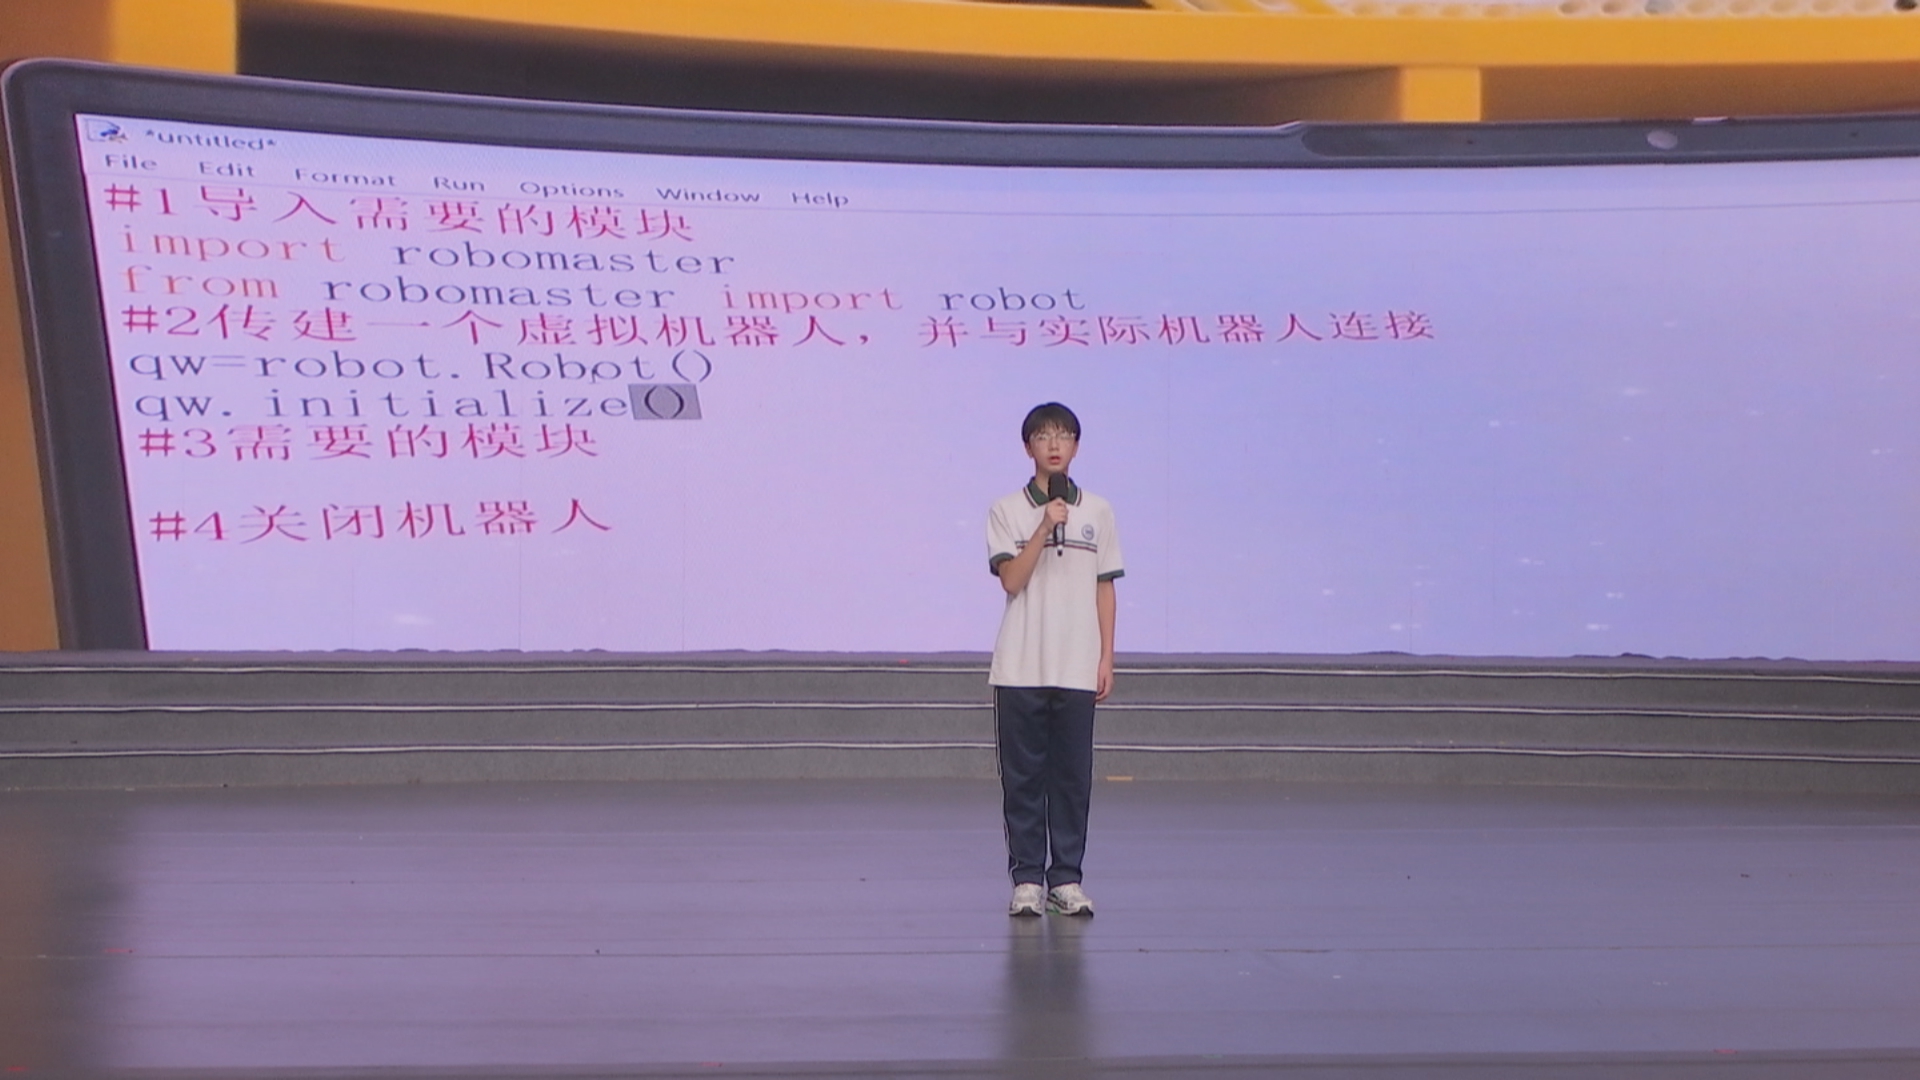 *untitled*
File Edit Format Run Options Window Help
#1导入需要的模块
import robomaster
from robomaster import robot
#2传建一个虚拟机器人，并与实际机器人连接
qw=robot.Robot()
qw.initialize()
#3需要的模块
#4关闭机器人